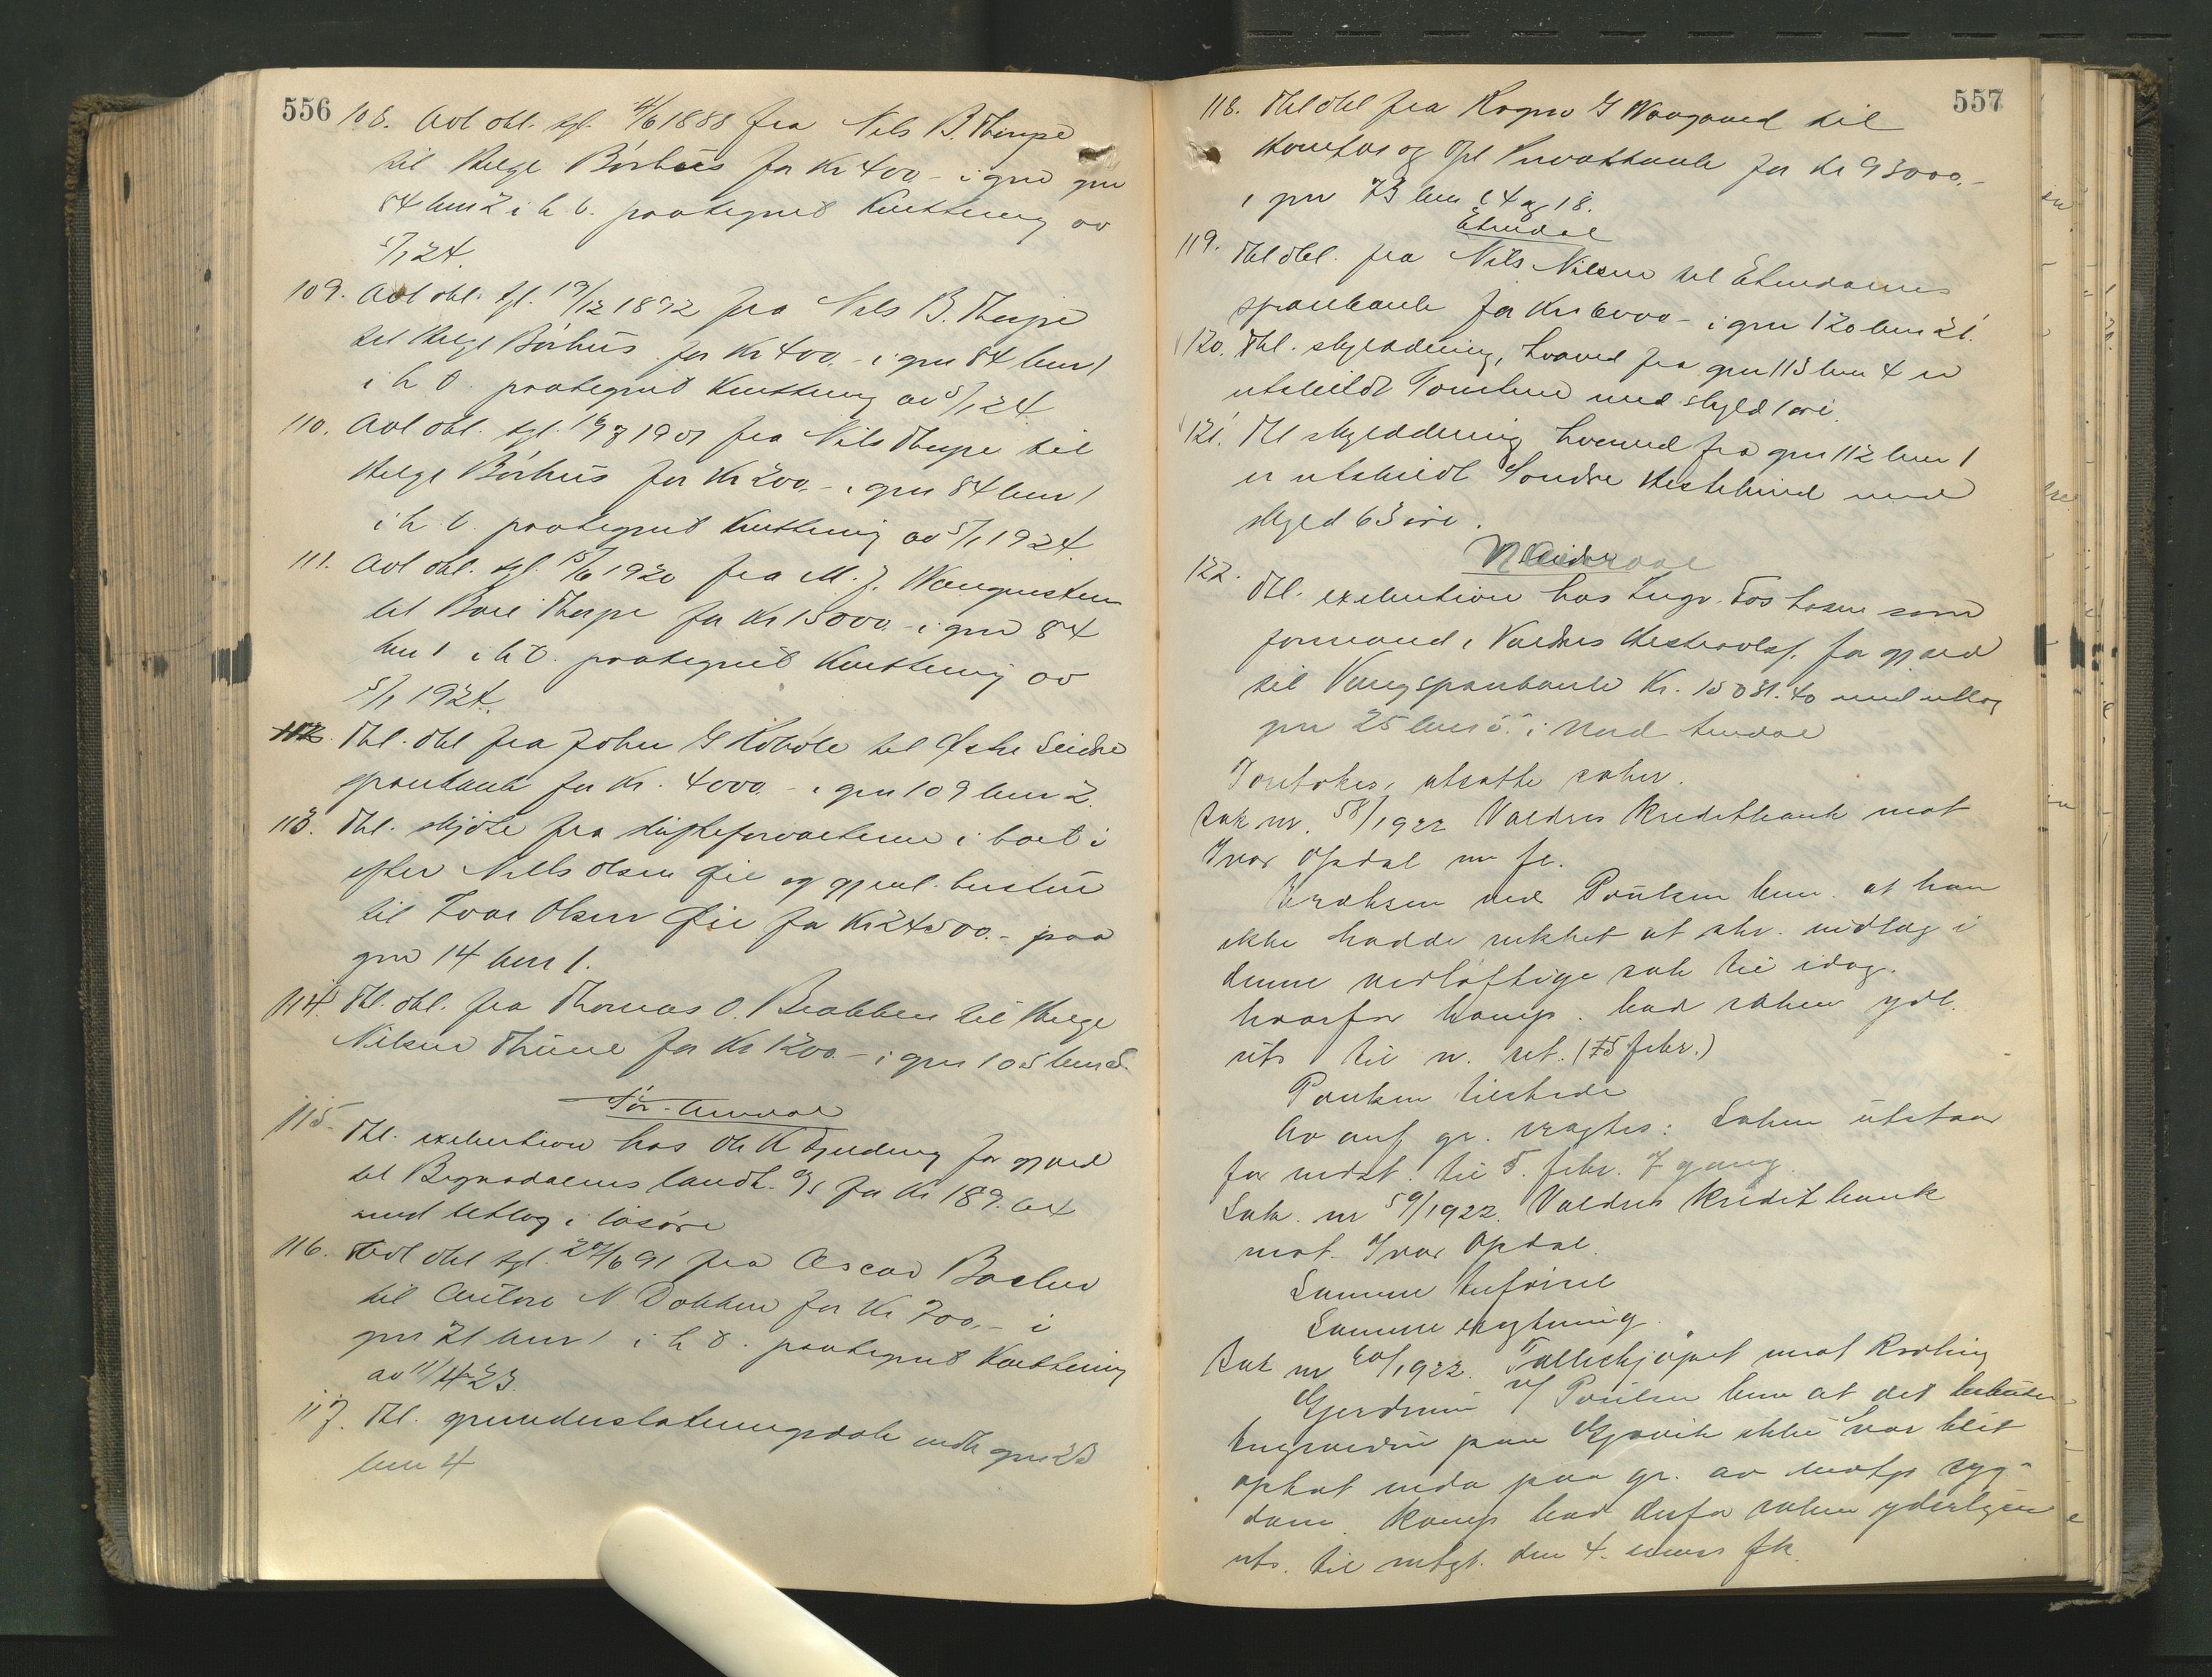 556
108. Avl obl. tgl. 4/6 1888 fra Nils B. Thorpe
til Helge Börhus for Kr 400 - i gno gnr
84 bnr 2 i h t. paategnet Kvittering av
5/1 24.
109. Avl obl. tgl. 19/12 1892 fra Nils B. Thorpe
til Helge Börhus for Kr 400. - i gnr 84 bnr 1
i h t. paategnet Kvittering av 5/1 24.
110. Avl obl. tgl. 19/8 1901 fra Nils Thorpe til
Helge Börhus for Kr 200. - i gnr 84 bnr 1
i h t. paategnet Kvittering av 5/1 1924.
111. Avl obl. tgl. 15/6 1920 fra M. J. Wangensten
til Boie Thorpe for Kr 15000 - i gnr 84
bnr 1 i h t. paategnet Kvittering av
5/1 1924.
112. Thl. obl fra John G Röböle til Østre Slidre
sparebank for Kr. 4000. - i gnr 109 bnr 2.
113. Thl. skjöte fra skifteforvalteren i boet i
efter Nills Olsen Øie og gjenl. hustru
til Ivar Olsen Øie for Kr 24500.- paa
gnr 14 bnr 1.
114. Thl. obl. fra Thomas O. Brabben til Helge
Nilsen Thune for Kr 1200. - i gnr 105 bnr 5.
Sör-Aurdal
115. Thl. exekution hos Ole K Gjerding for gjæld
til Begnadalens landh. for Kr 189.64
med utlæg i lösöre
116. Avl obl tgl. 29/6 91 fra Oscar Bachev
til N Dokken for Kr 700,- i
gnr 21 bnr 1 i h t. paategnet Kvittering
av 11/4 23.
117. Thl. grunderstatningssak gnr 23
bnr 4
557
118. Thl obl fra Ragno G Wangaard til
og Opl Privatbank for Kr 93000.-
i gnr 73 bnr 14 og 18.
Etnedal
119. Thl obl. fra Nils Nilsen til Etnedalens
sparebank for Kr 6000 - i gnr 120 bnr 21.
120. Thl. skylddeling, hvorved fra gnr 113 bnr 4 er
utskildt med skyld 1 øre.
121. Thl skylddeling hvorved fra gnr 112 bnr 1
er utskildt Søndre Hestekind med
skyld 63 øre.
122. Thl. exekution hos Ingv. som
formand i Valdres Hesteavlsf. for gjæld
til Vang sparebank Kr. 15081.40 med utlæg
gnr 25 bnr 5. i Nord Aurdal
Foretokes, utsatte saker.
Sak nr. 58/1922 Valdres Kreditbank mot
Ivar Opdal m fl.
Eriksen ved Poulsen bem. at han
ikke hadde rukket at skr. indlæg i
denne vidløftige sak til idag.
hvorfor komp. bad saken ydl.
uts til n. ret. (15 febr.)
Poulsen tilstede
Av anf gr. vragtes: Saken utstaar
for redst. til 5. febr. 7 gang.
Sak. nr 59/1922. Valdres Kreditbank
mot. Ivar Opdal.
Samme tilførsel
Samme eragtning.
Sak nr 60/1922. Felleskjøpet mot Kroling
Gjerdrum v/ Poulsen bem at det
paa Gjøvik ikke var blit
optat enda paa gr. av motp. syg-
dom. Komp. bad derfor saken yderligere
uts. til rettgt. den 4. mars fk.